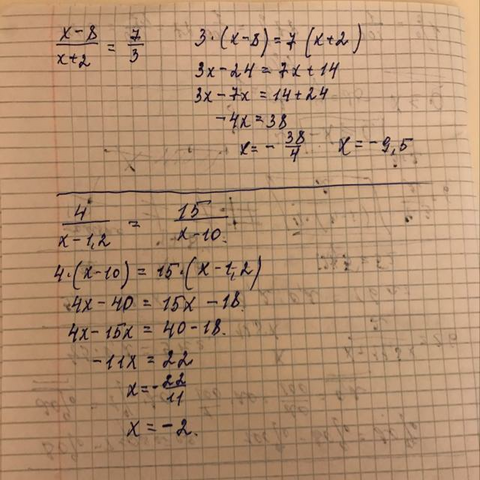 (x-8)/(x+2) = 7/3
3·(x-8)=7(x+2)
3x-24=7x+14
3x-7x=14+24
-4x=38
x=-38/4 x=-9,5
4/(x-1,2) = 15/(x-10)
4·(x-10)=15·(x-1,2)
4x-40=15x-18.
4x-15x=40-18.
-11x=22
x=-22/11
x=-2.